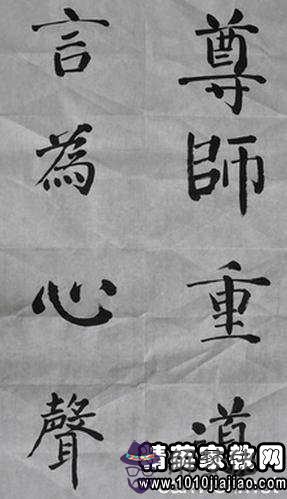 尊師重道
言為心聲
精英家教网
www.1010jiajiao.com